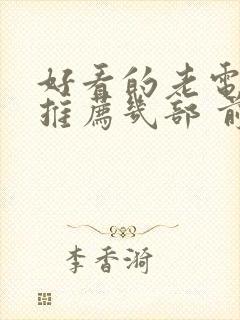 好看的老電
推薦幾部 前
李香漪